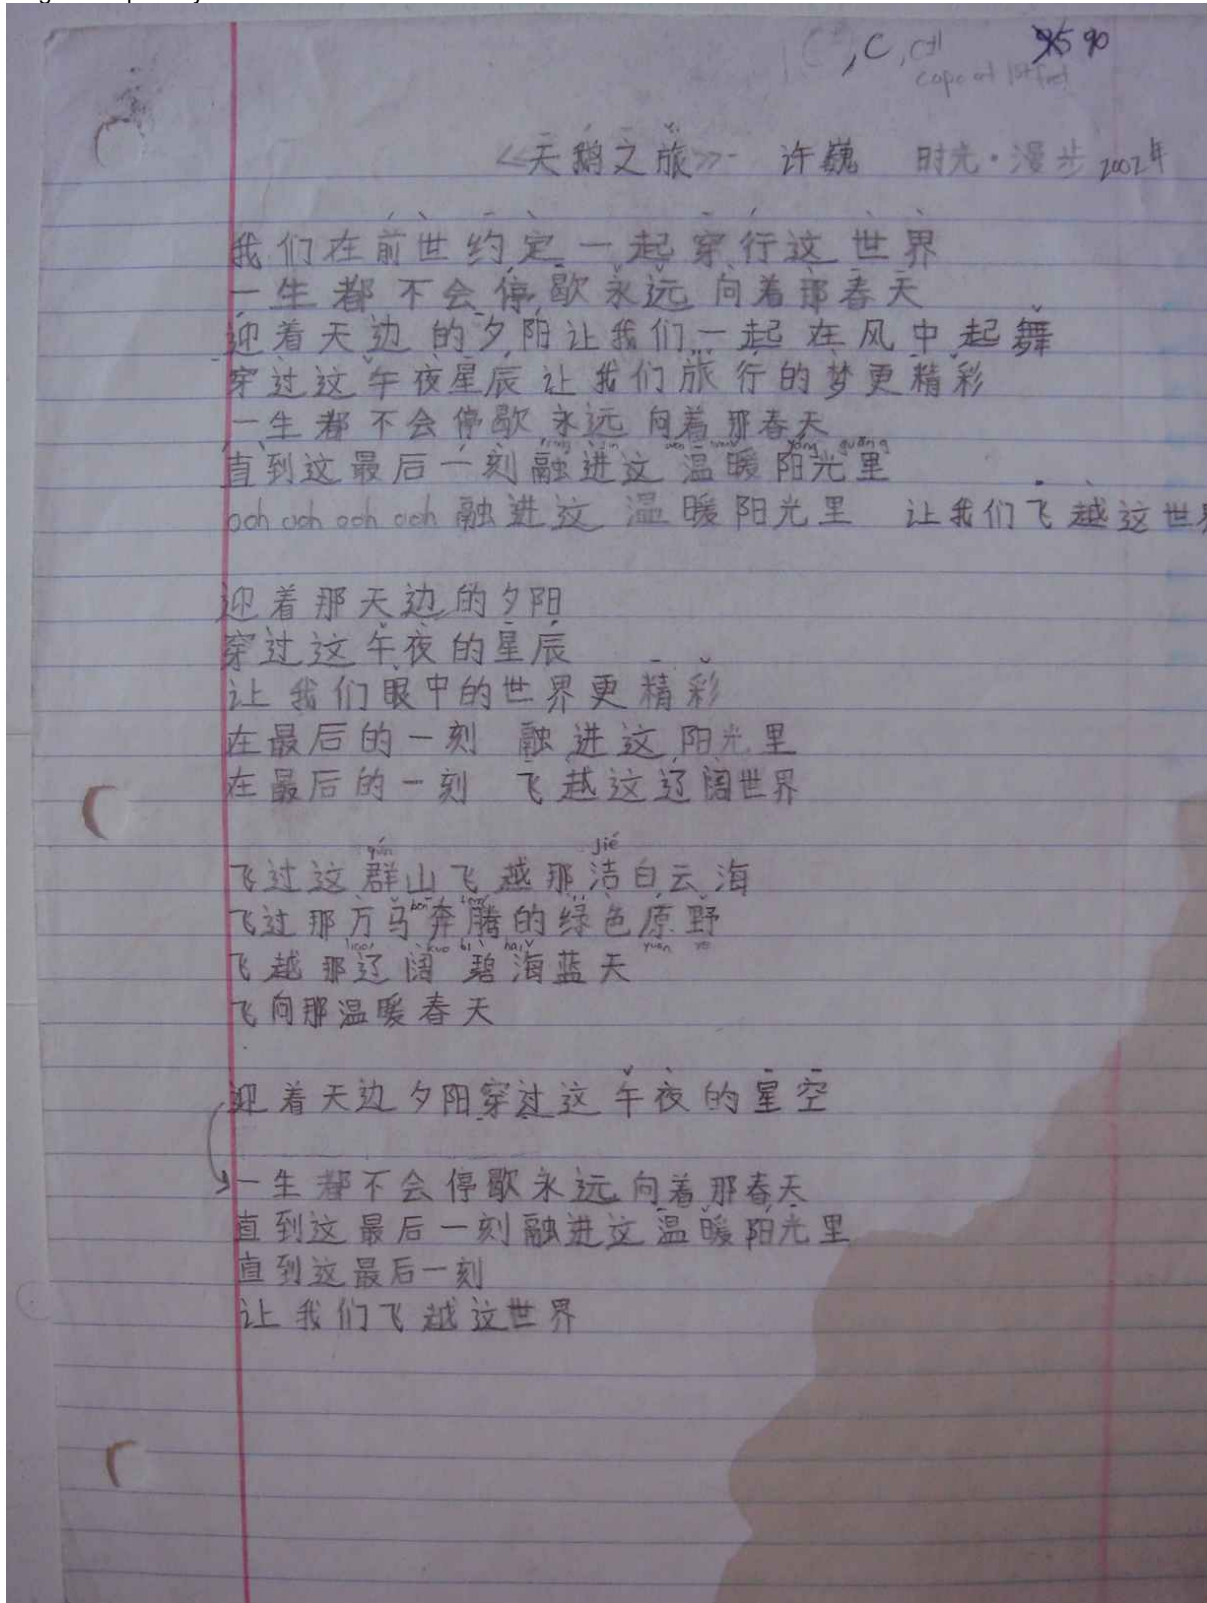 , C, C#
95 90
capo at 1st fret
《天鹅之旅》- 许巍 时光·漫步 2002年
我们在前世约定 一起穿行这世界
一生都不会停歇永远向着那春天
迎着天边的夕阳让我们一起在风中起舞
穿过这午夜星辰让我们旅行的梦更精彩
一生都不会停歇永远向着那春天
róng jìn wēn nuǎn yáng guāng
直到这最后一刻融进这温暖阳光里
ooh ooh ooh ooh 融进这温暖阳光里 让我们飞越这世界
迎着那天边的夕阳
穿过这午夜的星辰
让我们眼中的世界更精彩
在最后的一刻 融进这阳光里
在最后的一刻 飞越这辽阔世界
qún jié
飞过这群山飞越那洁白云海
飞过那万马奔腾的绿色原野
liáo kuò bì hǎi yuán yě
飞越那辽阔碧海蓝天
飞向那温暖春天
迎着天边夕阳穿过这午夜的星空
一生都不会停歇永远向着那春天
直到这最后一刻融进这温暖阳光里
直到这最后一刻
让我们飞越这世界